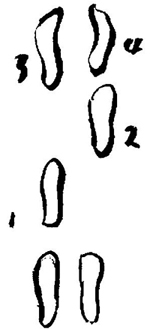 3 4
2
1